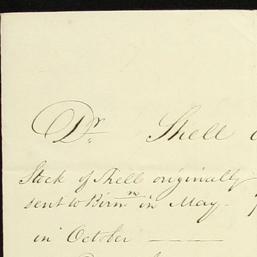 Dr. Shell
Stock of Shell originally
sent to Birm^m in May.
in October